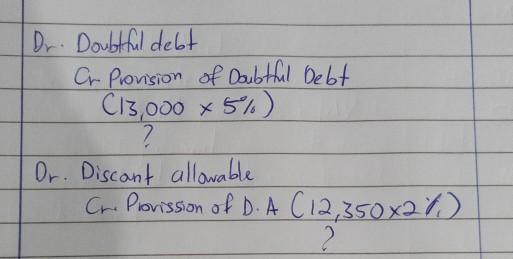 Dr. Doubtful debt
Cr Provision of Doubtful Debt
(13,000 x 5%)
?
Dr. Discant allowable
Cr. Provission of D.A (12,350x2%)
?